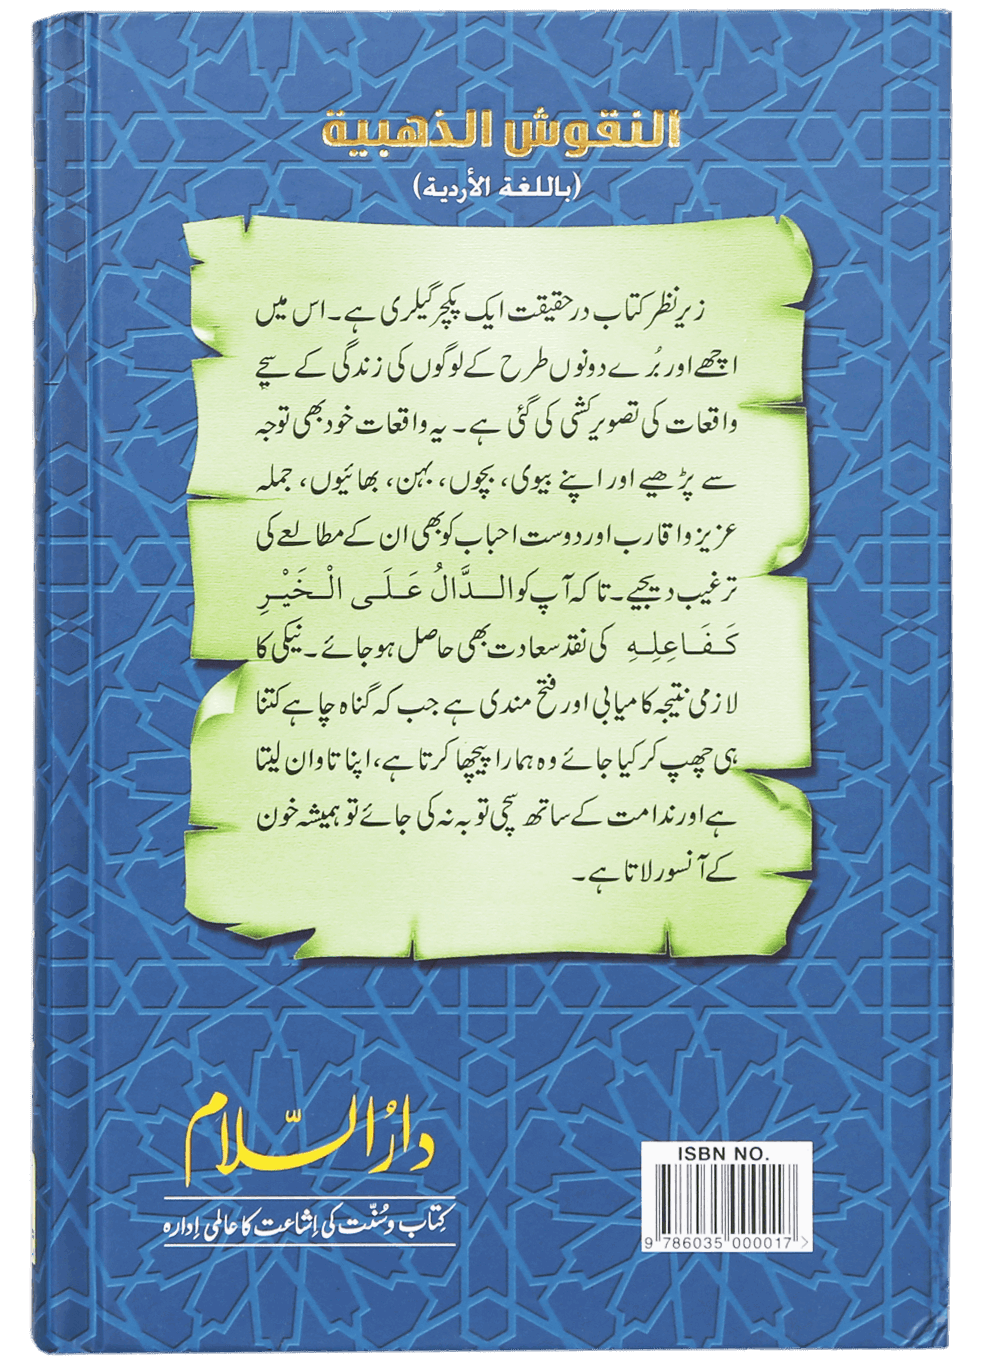 النقوش الذهبية
(باللغة الأردية)
زیرِ نظر کتاب در حقیقت ایک پکچر گیلری ہے۔ اس میں
اچھے اور بُرے دونوں طرح کے لوگوں کی زندگی کے سچے
واقعات کی تصویر کشی کی گئی ہے۔ یہ واقعات خود بھی توجہ
سے پڑھیے اور اپنے بیوی، بچوں، بہن، بھائیوں، جملہ
عزیز و اقارب اور دوست احباب کو بھی ان کے مطالعے کی
ترغیب دیجیے۔ تاکہ آپ کو الدَّالُ عَلَى الْخَيْرِ
كَفَاعِلِهِ کی نقد سعادت بھی حاصل ہو جائے۔ نیکی کا
لازمی نتیجہ کامیابی اور فتح مندی ہے جب کہ گناہ چاہے کتنا
ہی چھپ کر کیا جائے وہ ہمارا پیچھا کرتا ہے، اپنا تاوان لیتا
ہے اور ندامت کے ساتھ سچی توبہ نہ کی جائے تو ہمیشہ خون
کے آنسو رلاتا ہے۔
دارُالسّلام
کِتاب و سُنّت کی اِشاعت کا عالمی اِدارہ
ISBN NO.
9 786035 000017 >